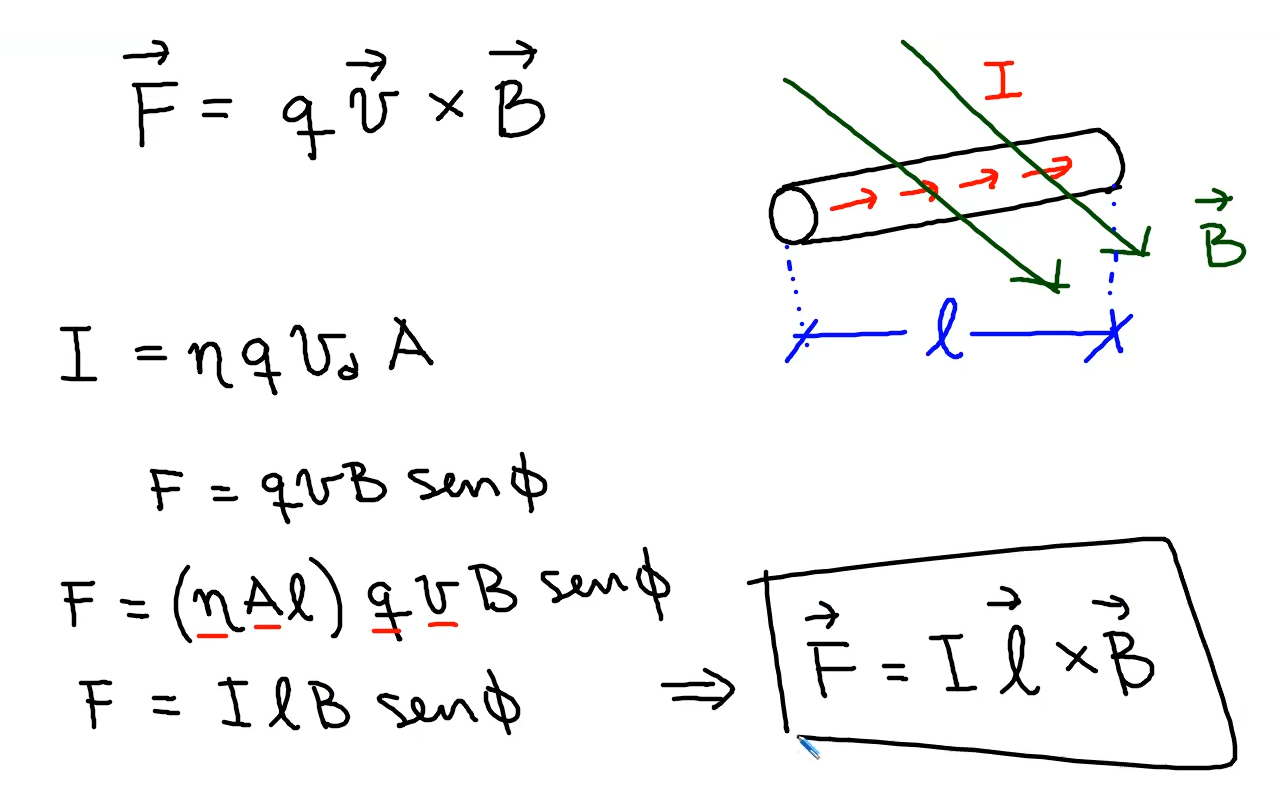 F⃗ = q v⃗ × B⃗
I
B⃗
l
I = n q v_d A
F = qvB sen ϕ
F = (nAl) q v B sen ϕ
F = I l B sen ϕ ⇒ F⃗ = I l⃗ × B⃗